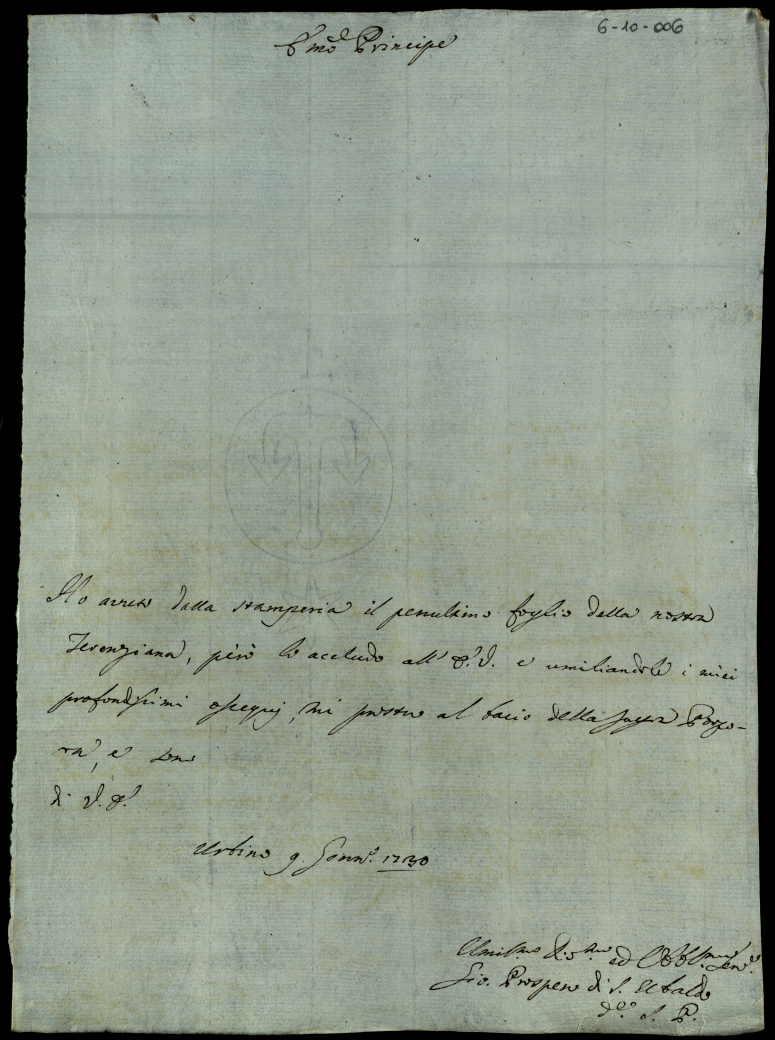 6-10-006
Emo Principe
Ho avuto dalla stamperia il penultimo foglio della nostra
Terenziana, però lo accludo all' E. V. e umiliandole i miei
profondissimi ossequj, mi prostro al bacio della sagra Porpo-
ra, e sono
di V. E.
Urbino 9. Genn. 1730
Umilmo ed Obblmo
Gio. Prospero di S. Ubaldo
S. P.